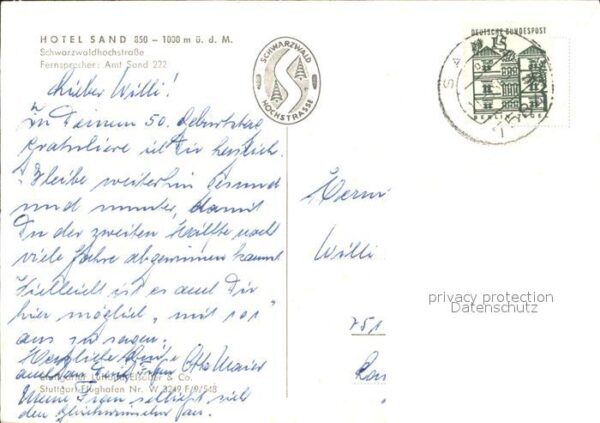 HOTEL SAND 850 – 1000 m ü. d. M.
Schwarzwaldhochstraße
Fernsprecher: Amt Sand 222
SCHWARZWALD
HOCHSTRASSE
DEUTSCHE BUNDESPOST
15
Lieber Willi!
Zu Deinem 50. Geburtstag
gratuliere ich Dir herzlich.
Bleibe weiterhin gesund
und munter, damit
Du der zweiten Hälfte noch
viele Jahre abgewinnen kannst
Vielleicht ist es auch Dir
hier möglich "mit 101"
aus zu sagen.
Herzliche Grüße
auch von Otto Maier
Stuttgarter Luftbild Elsäßer & Co.
Stuttgart-Flughafen Nr. W 3249 F/9/548
Meine Frau schließt sich
den Glückwünschen an.
Herrn
Willi
751
privacy protection
Datenschutz